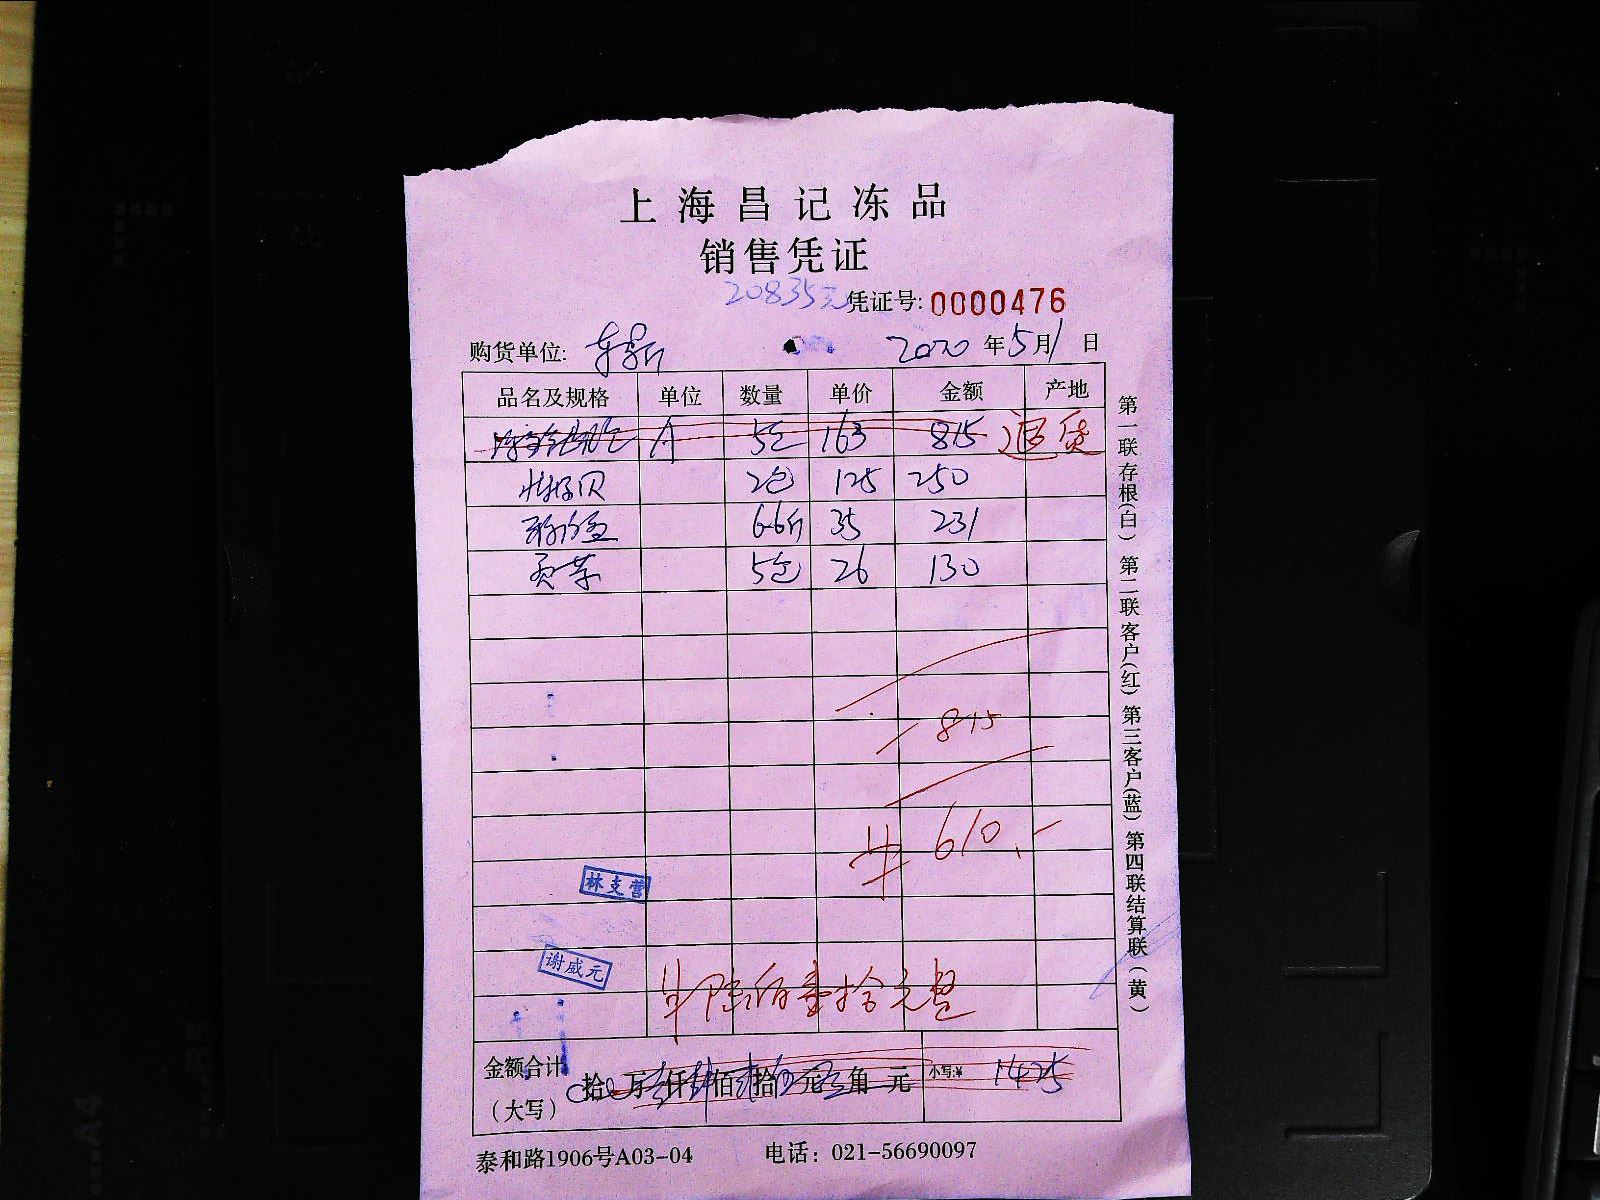 上海昌记冻品
销售凭证
20835元 凭证号: 0000476
购货单位: 2020 年 5 月 1 日
品名及规格 单位 数量 单价 金额 产地
A 5包 163 815 退货
2包 125 250
6.6斤 35 231
贡菜 5包 26 130
815
共 610.-
林支营
谢威元
共陆佰壹拾元整
金额合计 拾 万 仟 佰 拾 元 角 元 小写:¥ 1425
(大写)
泰和路1906号A03-04 电话: 021-56690097
第一联存根(白) 第二联客户(红) 第三客户(蓝) 第四联结算联(黄)